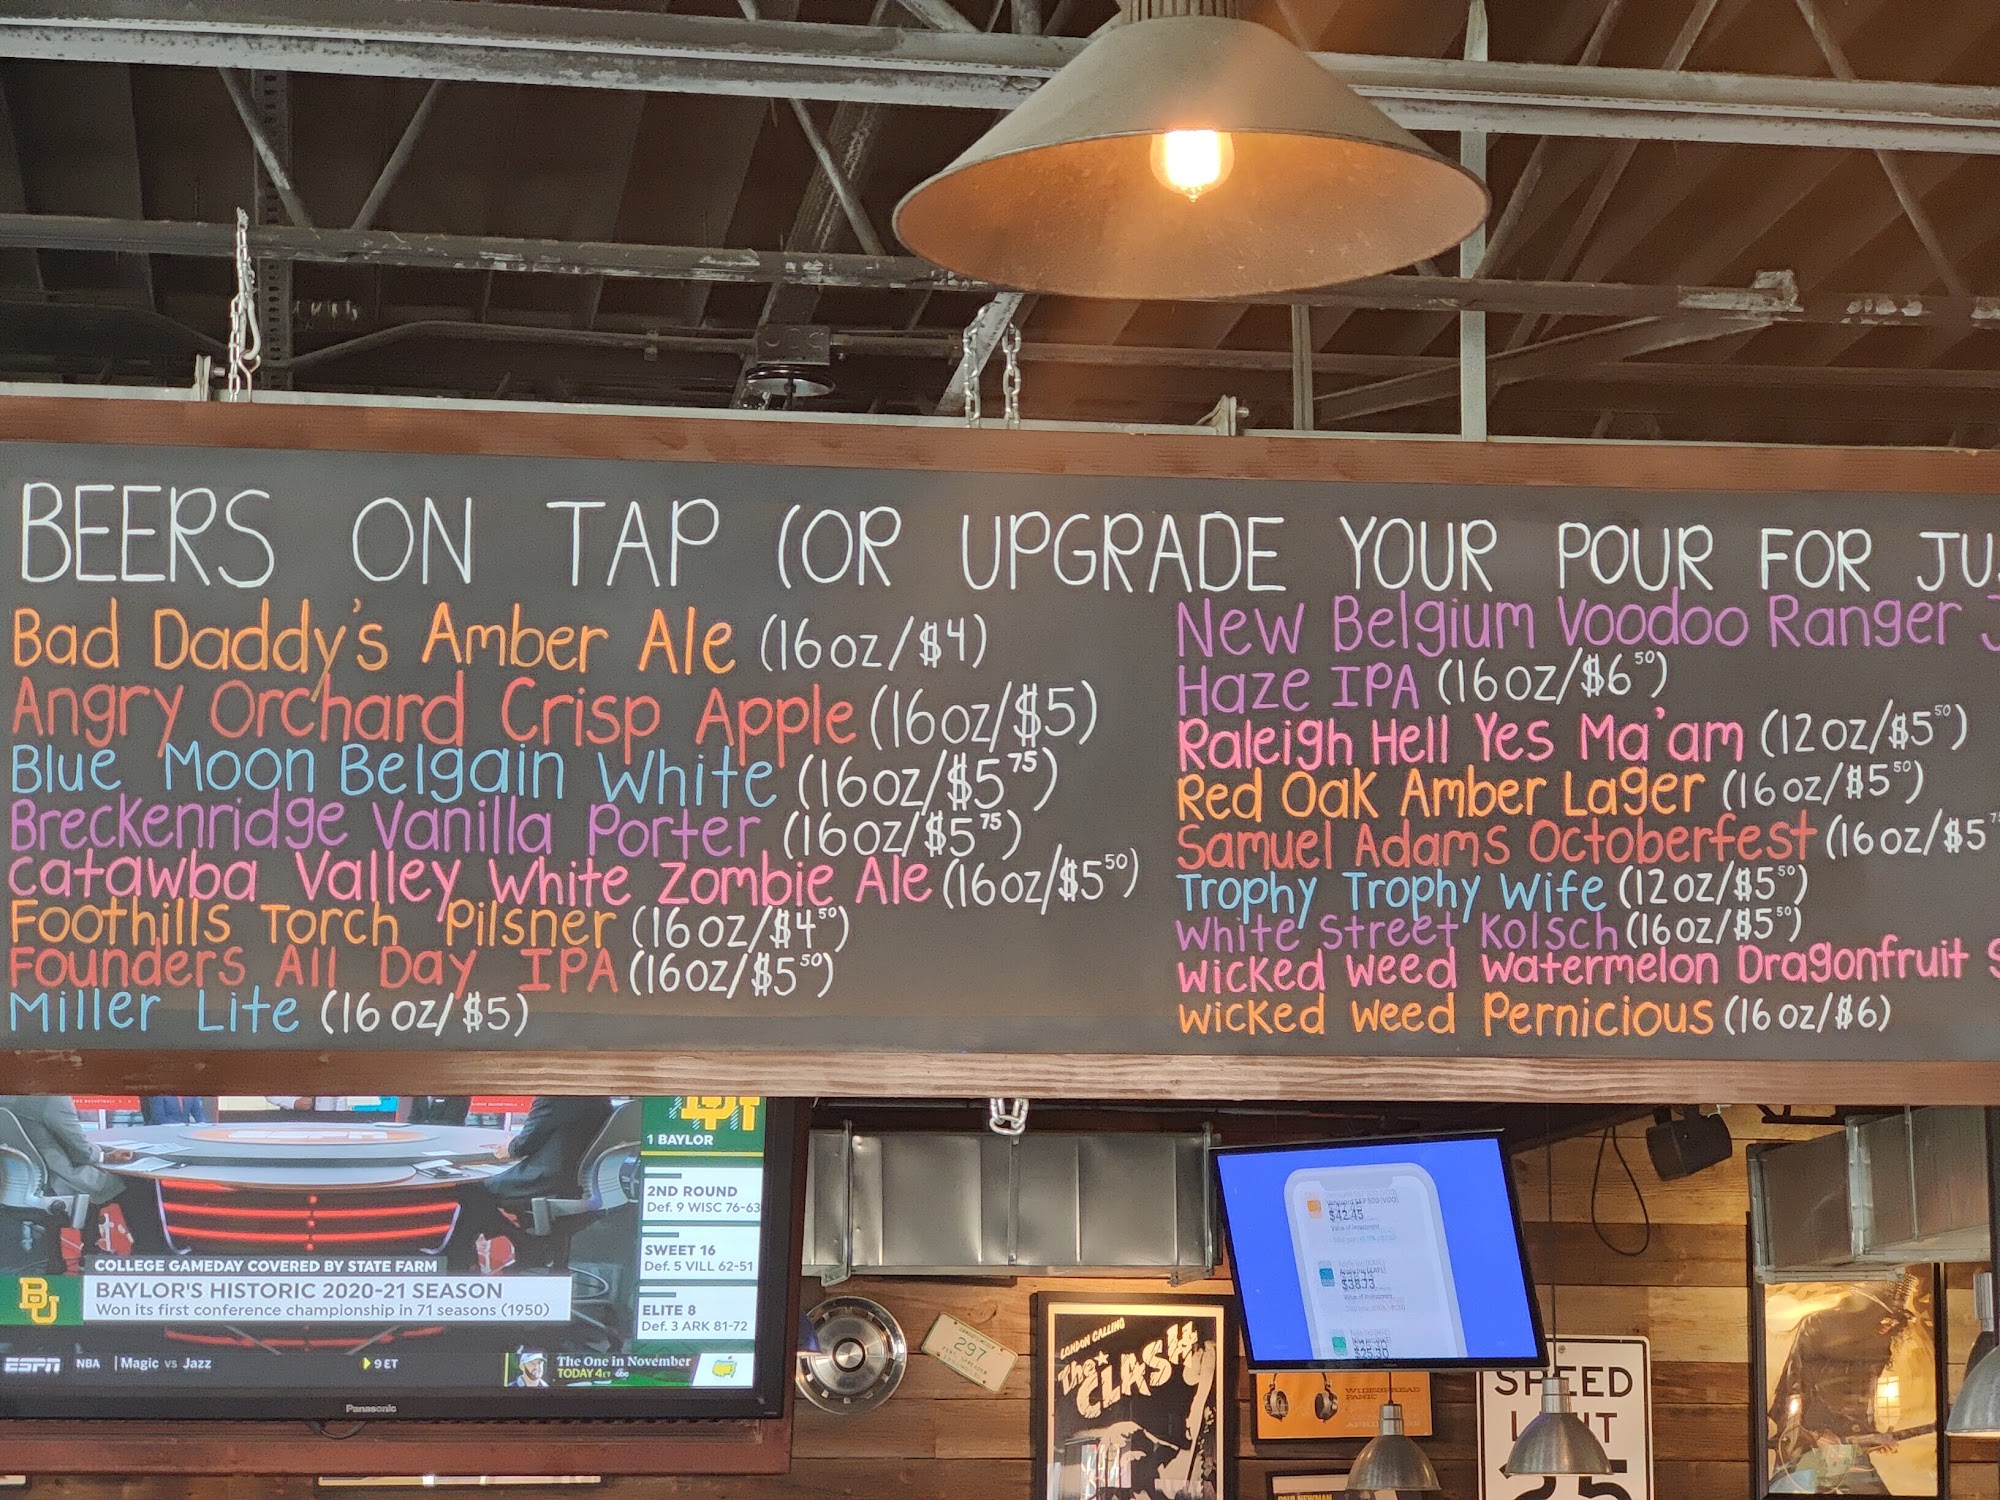 BEERS ON TAP (OR UPGRADE YOUR POUR FOR
Bad Daddy's Amber Ale (16oz/$4)
Angry Orchard Crisp Apple (16oz/$5)
Blue Moon Belgain White (16oz/$5 75)
Breckenridge Vanilla Porter (16oz/$5 75)
Catawba Valley White Zombie Ale (16oz/$5 50)
Foothills Torch Pilsner (16oz/$4 50)
Founders All Day IPA (16oz/$5 50)
Miller Lite (16oz/$5)
New Belgium Voodoo Ranger J
Haze IPA (16oz/$6 50)
Raleigh Hell Yes Ma'am (12oz/$5 50)
Red Oak Amber Lager (16oz/$5 50)
Samuel Adams Octoberfest (16oz/$5
Trophy Trophy Wife (12oz/$5 50)
White Street Kolsch (16oz/$5 50)
Wicked Weed Watermelon Dragonfruit S
Wicked Weed Pernicious (16oz/$6)
1 BAYLOR
2ND ROUND
Def. 9 WISC 76-63
SWEET 16
Def. 5 VILL 62-51
ELITE 8
Def. 3 ARK 81-72
COLLEGE GAMEDAY COVERED BY STATE FARM
BU
BAYLOR'S HISTORIC 2020-21 SEASON
Won its first conference championship in 71 seasons (1950)
ESPN NBA Magic vs Jazz 9 ET
The One in November
TODAY 4ET abc
Panasonic
$42.45
Value of Investment
$38.73
297
LONDON CALLING
The CLASH
WIDESPREAD
PANIC
SPEED
LIMIT
PAUL NEWMAN